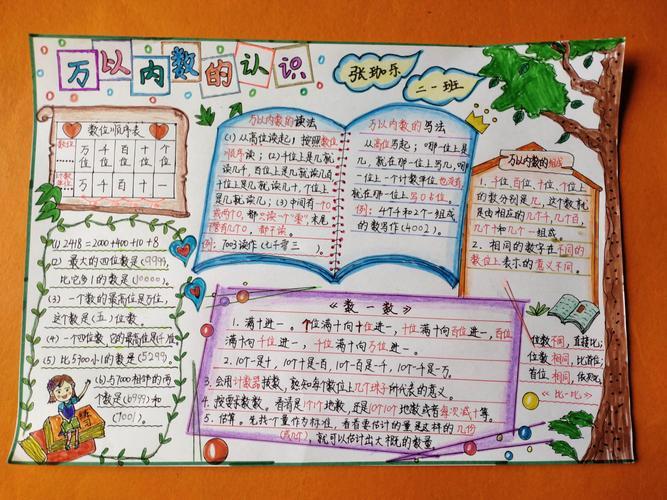 万以内数的认识
张珈乐
二一班
数位顺序表
数位 万位 千位 百位 十位 个位
计数单位 万 千 百 十 一
(1) 2418=2000+400+10+8
(2) 最大的四位数是(9999),
比它多1的数是(10000).
(3) 一个数的最高位是万位,
这个数是(五)位数.
(4) 一个四位数,它的最高位是千位.
(5) 比5
小1的数是(5299).
(6) 与7000相邻的两
个数是(6999)和
(7001).
万以内数的读法
(1) 从高位读起,按照数位
顺序读;(2) 千位上是几就
读几千,百位上是几就读几百
十位上是几就读几十,个位上
是几就读几;(3) 中间有一个0
或两个0,都只读一个"零",末尾
不管有几个0,都不读.
例: 7003读作(七千零三).
万以内数的写法
从高位写起;哪一位上是
几,就在那一位上写几;哪一
位上一个计数单位也没有,
就在那一位上写0占位.
例: 4个千和2个一组成
的数写作(4002).
万以内数的组成
1. 千位,百位,十位,个位上
的数分别是几,这个数就
是由相应的几个千,几个百,
几个十和几个一组成.
2. 相同的数字在不同的
数位上表示的意义不同.
《数一数》
1. 满十进一。个位满十向十位进一,十位满十向百位进一,百位
满十向千位进一,千位满十向万位进一.
2. 10个一是十,10个十是一百,10个一百是一千,10个一千是一万.
3. 会用计数器拨数,熟知每个数位上几个珠子所代表的意义.
4. 按要求数数。看清是1个1个地数,还是10个10个地数或者每次减十等.
5. 估算。先找个量作为标准,看看要估计的量是这样的几份
(或几个),就可以估计出大概的数量
位数不同,直接比;
位数相同,比首位;
首位相同,依次比.
《比一比》